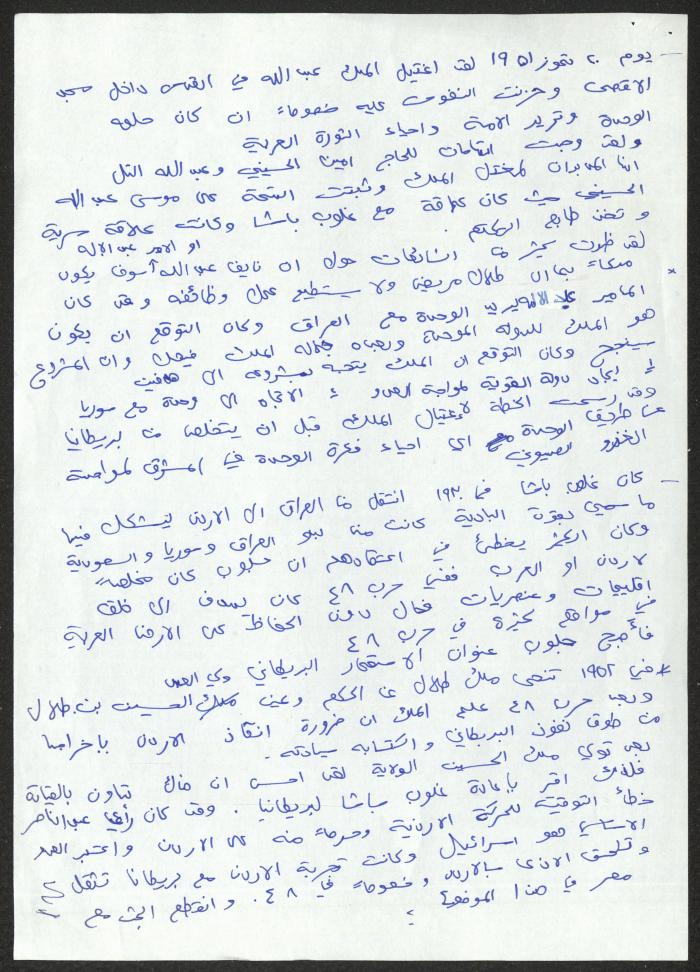 - يوم ٢٠ تموز ١٩٥١ لقد اغتيل الملك عبد الله في القدس داخل مسجد
الاقصى وحزنت النفوس عليه خصوصاً ان كان حلمه
الوحدة وتحرير الامة واحياء الثورة العربية
ولقد وجهت اتهامات للحاج امين الحسيني وعبد الله التل
المدبران لمقتل الملك وثبتت التهمة على موسى عبد الله
الحسيني حيث كان علاقة مع غلوب باشا وكانت علاقة سرية
وتحت طابع التكتم .
او الامير عبد الاله
لقد ظهرت كثير من الشائعات حول ان نايف عبد الله سوف يكون
ملكاً بما ان طلال مريض ولا يستطيع عمل وظائفه وقد كان
يريد الوحدة مع العراق وكان التوقع ان يكون
هو الملك للدولة الموحدة وبعده جلالة الملك فيصل وان المشروع
سينجح وكان التوقع ان الملك يتجه بمشروعه الى
ايجاد دولة القوية لمواجهة العدو و الاتجاه الى وحدة مع سوريا
وقد رسمت الخطة لاغتيال الملك قبل ان يتخلص من بريطانيا
عن طريق الوحدة اي احياء فكرة الوحدة في المشرق لمواجهة
الغزو الصهيوني
- كان غلوب باشا فما ١٩٣٠ انتقل من العراق الى الاردن ليشكل فيها
ما سمي بقوة البادية كانت من بدو العراق وسوريا والسعودية
وكان الكثير يخطئ في اعتقادهم ان غلوب كان مخلصاً
لاردن او العرب ففي حرب ٤٨ كان يهدف الى خلق
اقليميات وعنصريات فحال دون الحفاظ على الارض العربية
في مواقع كثيرة في حرب ٤٨
فأصبح غلوب عنوان الاستعمار البريطاني
* في ١٩٥٢ تنحى ملك طلال عن الحكم وعين ملك الحسين بن طلال
وبعد حرب ٤٨ علم الملك ان ضرورة انقاذ الاردن باخراجها
من طوق نفوذ البريطاني واكتسابه سيادته .
بعد تولي ملك الحسين الولاية لقد احس ان هناك تهاون بالقيادة
فلذلك اقر بإعادة غلوب باشا لبريطانيا . وقد كان رأي عبد الناصر
خطأ التوقيت للحركة الاردنية وحرصاً منه على الاردن واعتبر العدو
الاساسي هو اسرائيل وكانت تجربة الاردن مع بريطانيا تثقل
وتلحق الاذى بالاردن وخصوصاً في ٤٨ . وانقطع البحث مع
مصر في هذا الموضوع